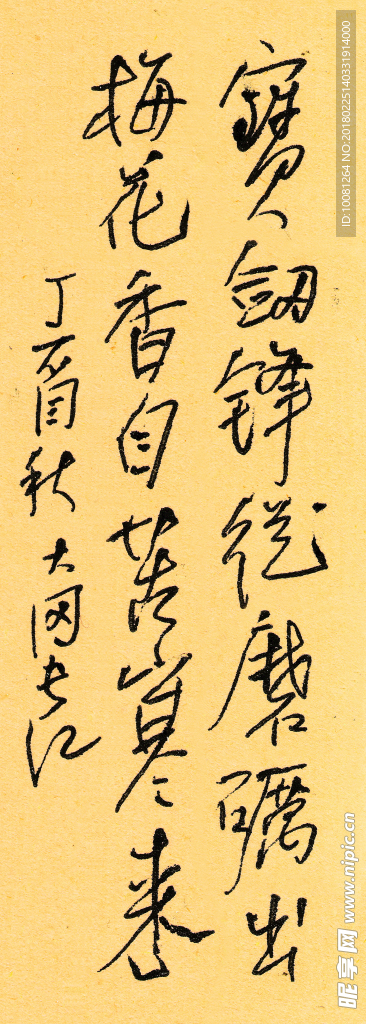 寶劔鋒従磨礪出
梅花香自苦寒来
丁酉秋 大岡
ID:10081264 NO:20180225140331914000
昵享网 www.nipic.cn